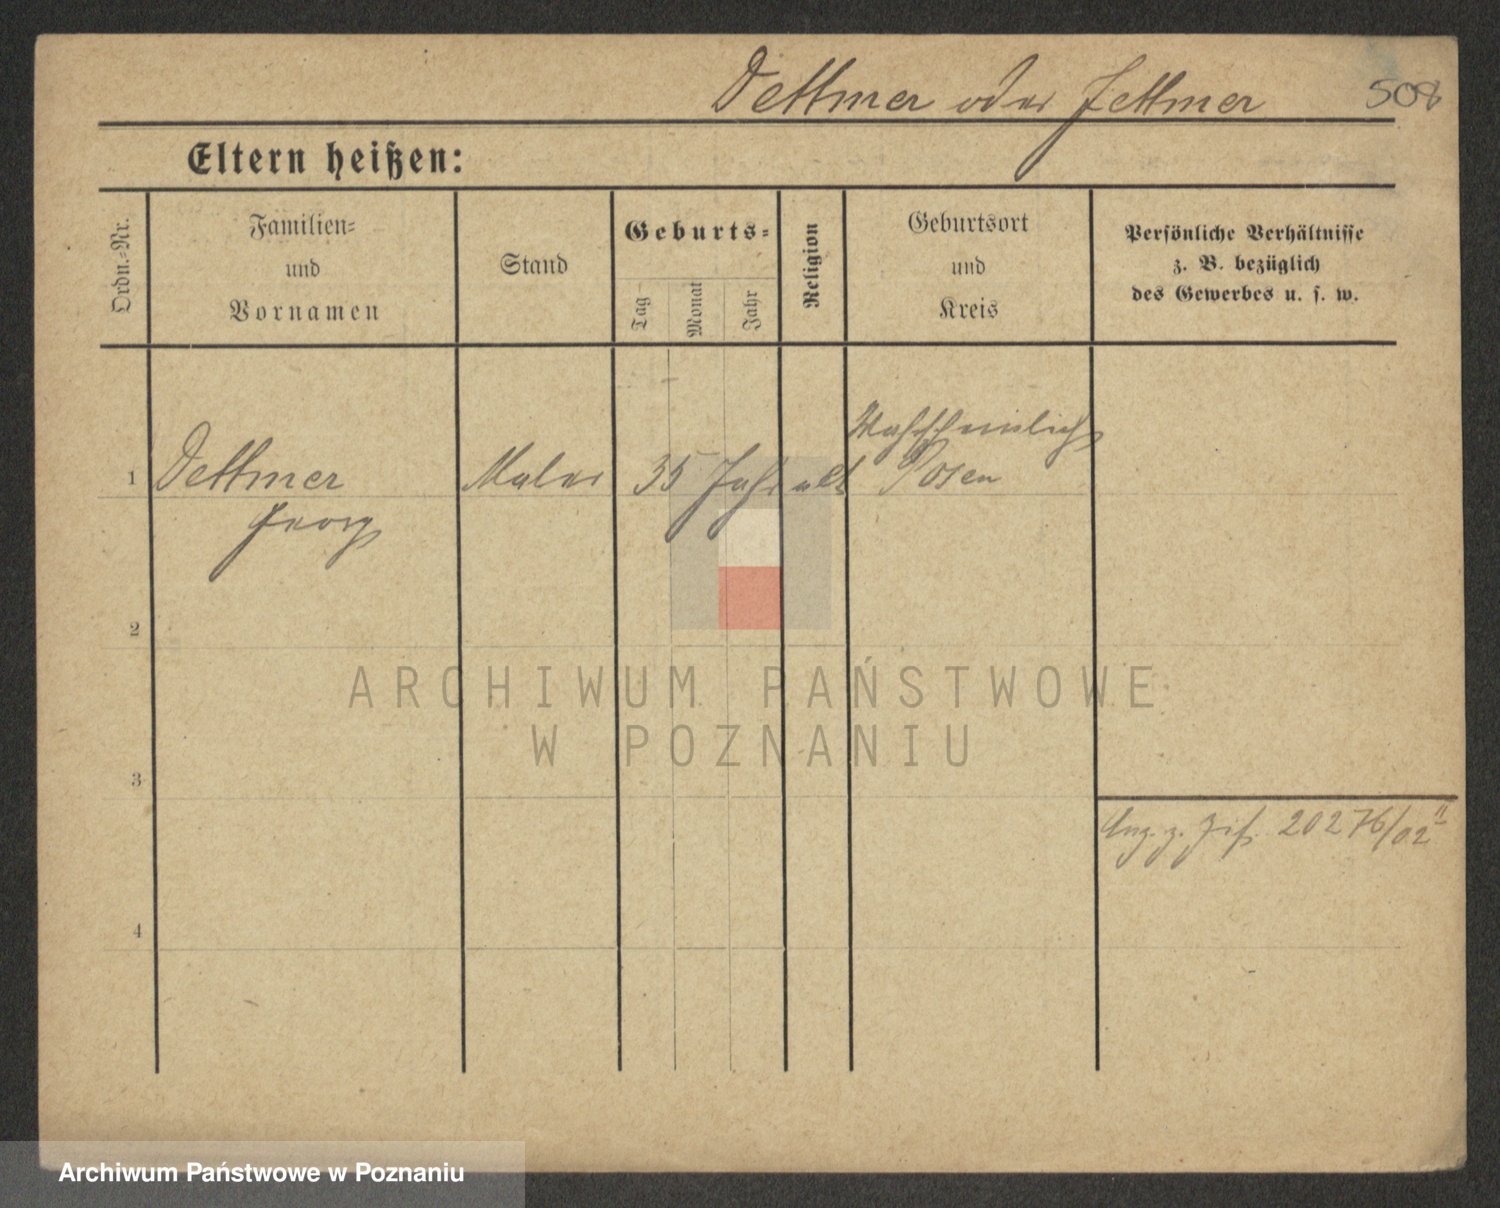 Dettmer oder Jettmer
508
Eltern heißen:
Ordn.-Nr.
Familien-
und
Vornamen
Stand
Geburts-
Tag
Monat
Jahr
Religion
Geburtsort
und
Kreis
Persönliche Verhältnisse
z. B. bezüglich
des Gewerbes u. s. w.
1 Dettmer Maler 35 Jahr alt Wahrscheinlich
Posen
Georg
2
3
20276/02
4
ARCHIWUM PAŃSTWOWE
W POZNANIU
Archiwum Państwowe w Poznaniu